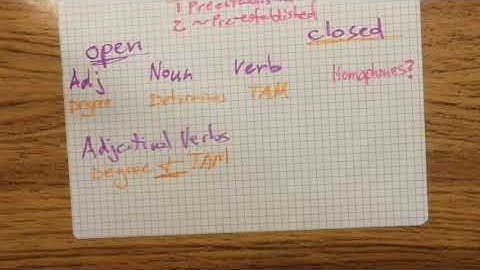 1 Preestablished
2 ~Pre-established
open
closed
Adj Noun Verb
Homophones?
Degree Determiners TAM
Adjectival Verbs
Degree & TAM